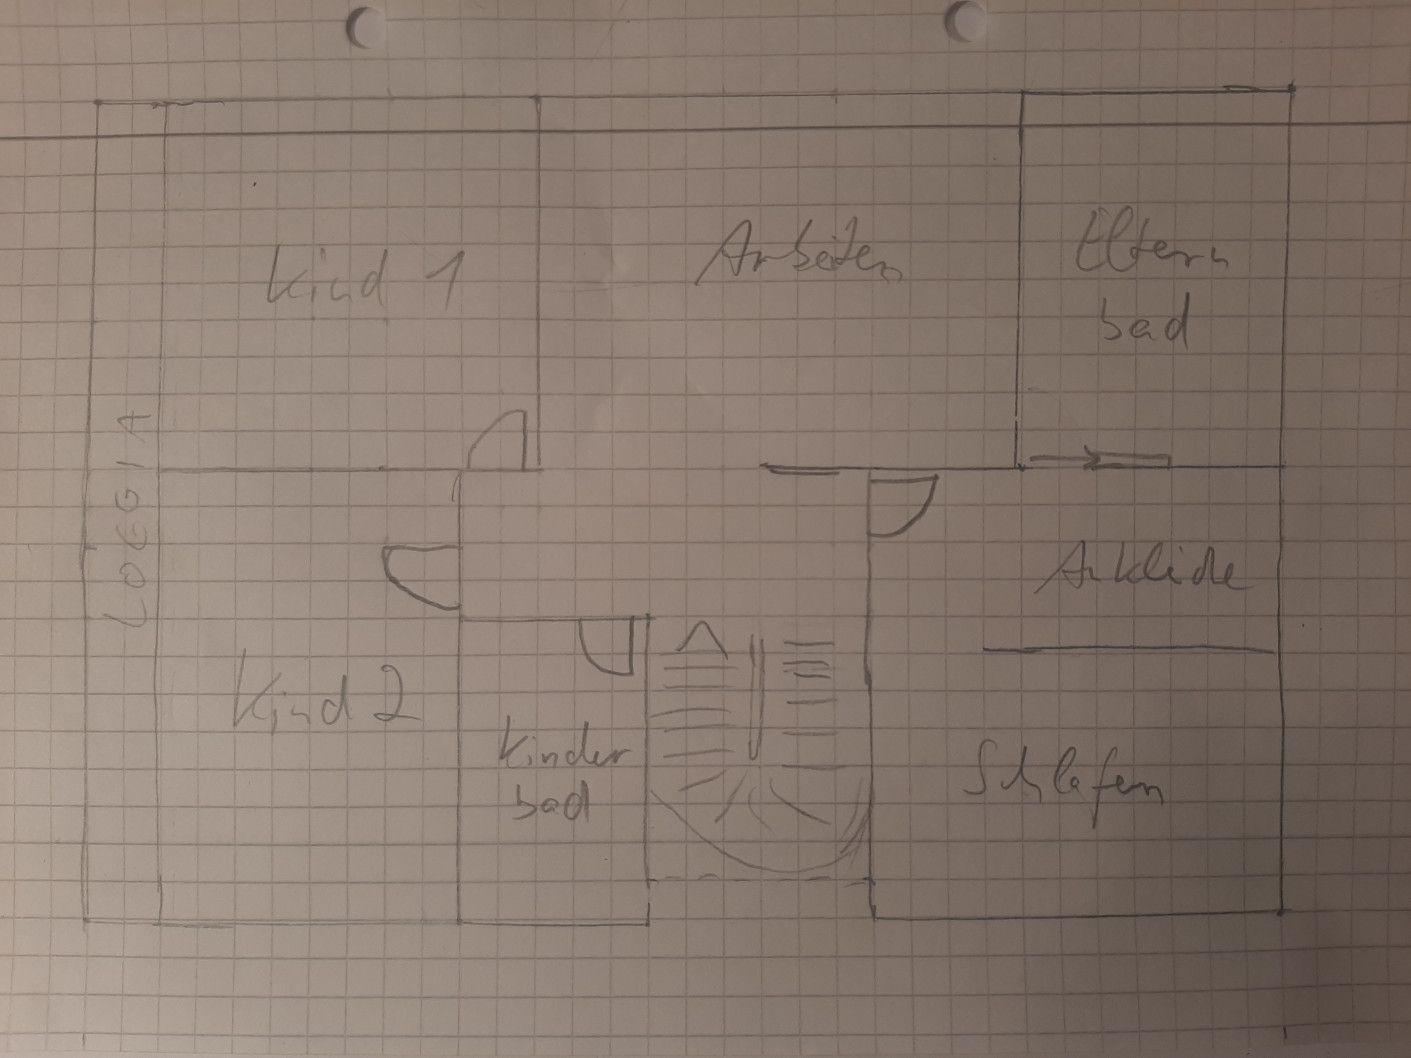 Kind 1
Arbeiten
Eltern
bad
LOGGIA
Ankleide
Kind 2
Kinder
bad
Schlafen